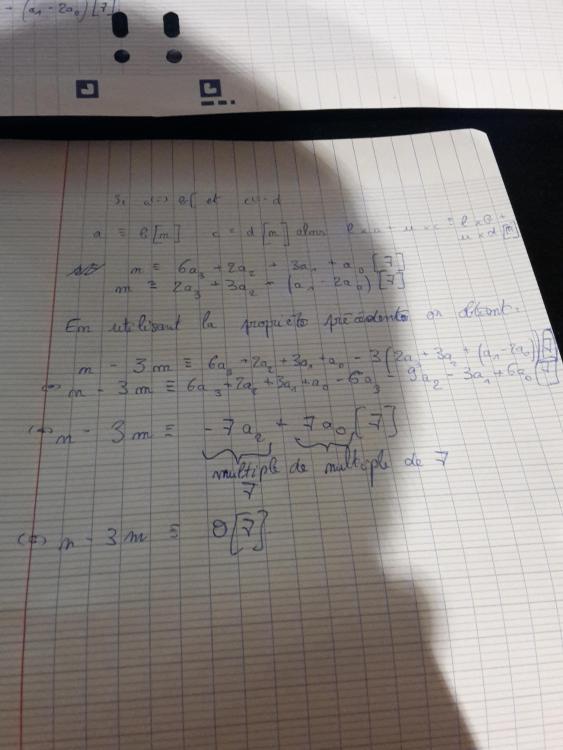 - (a₁ - 2a₀) [7]
Si et
a ≡ b[m] c ≡ d [m] alors
n ≡ 6a₃ + 2a₂ + 3a₁ + a₀ [7]
m ≡ 2a₃ + 3a₂ - (a₁ - 2a₀) [7]
En utilisant la propriété précédente on obtient.
n - 3m ≡ 6a₃ + 2a₂ + 3a₁ + a₀ - 3(2a₃ + 3a₂ + (a₁ - 2a₀)) [7]
(=) n - 3m ≡ 6a₃ + 2a₂ + 3a₁ + a₀ - 6a₃ - 9a₂ - 3a₁ + 6a₀ [7]
(=) n - 3m ≡ - 7a₂ + 7a₀ [7]
multiple de multiple de 7
7
(=) n - 3m ≡ 0[7]